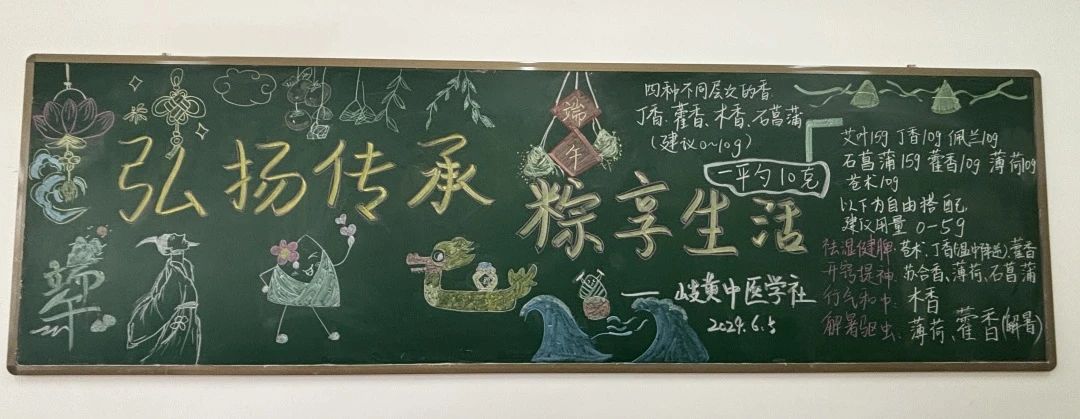 弘扬传承
端午
端午
粽享生活
——岐黄中医学社
2024.6.5
四种不同层次的香
丁香、藿香、木香、石菖蒲
(建议0~10g)
一平勺10克
艾叶15g 丁香10g 佩兰10g
石菖蒲15g 藿香10g 薄荷10g
苍术10g
以下为自由搭配
建议用量 0-5g
祛湿健脾:苍术、丁香(温中降逆)、藿香
开窍提神:苏合香、薄荷、石菖蒲
行气和中:木香
解暑驱虫:薄荷、藿香(解暑)